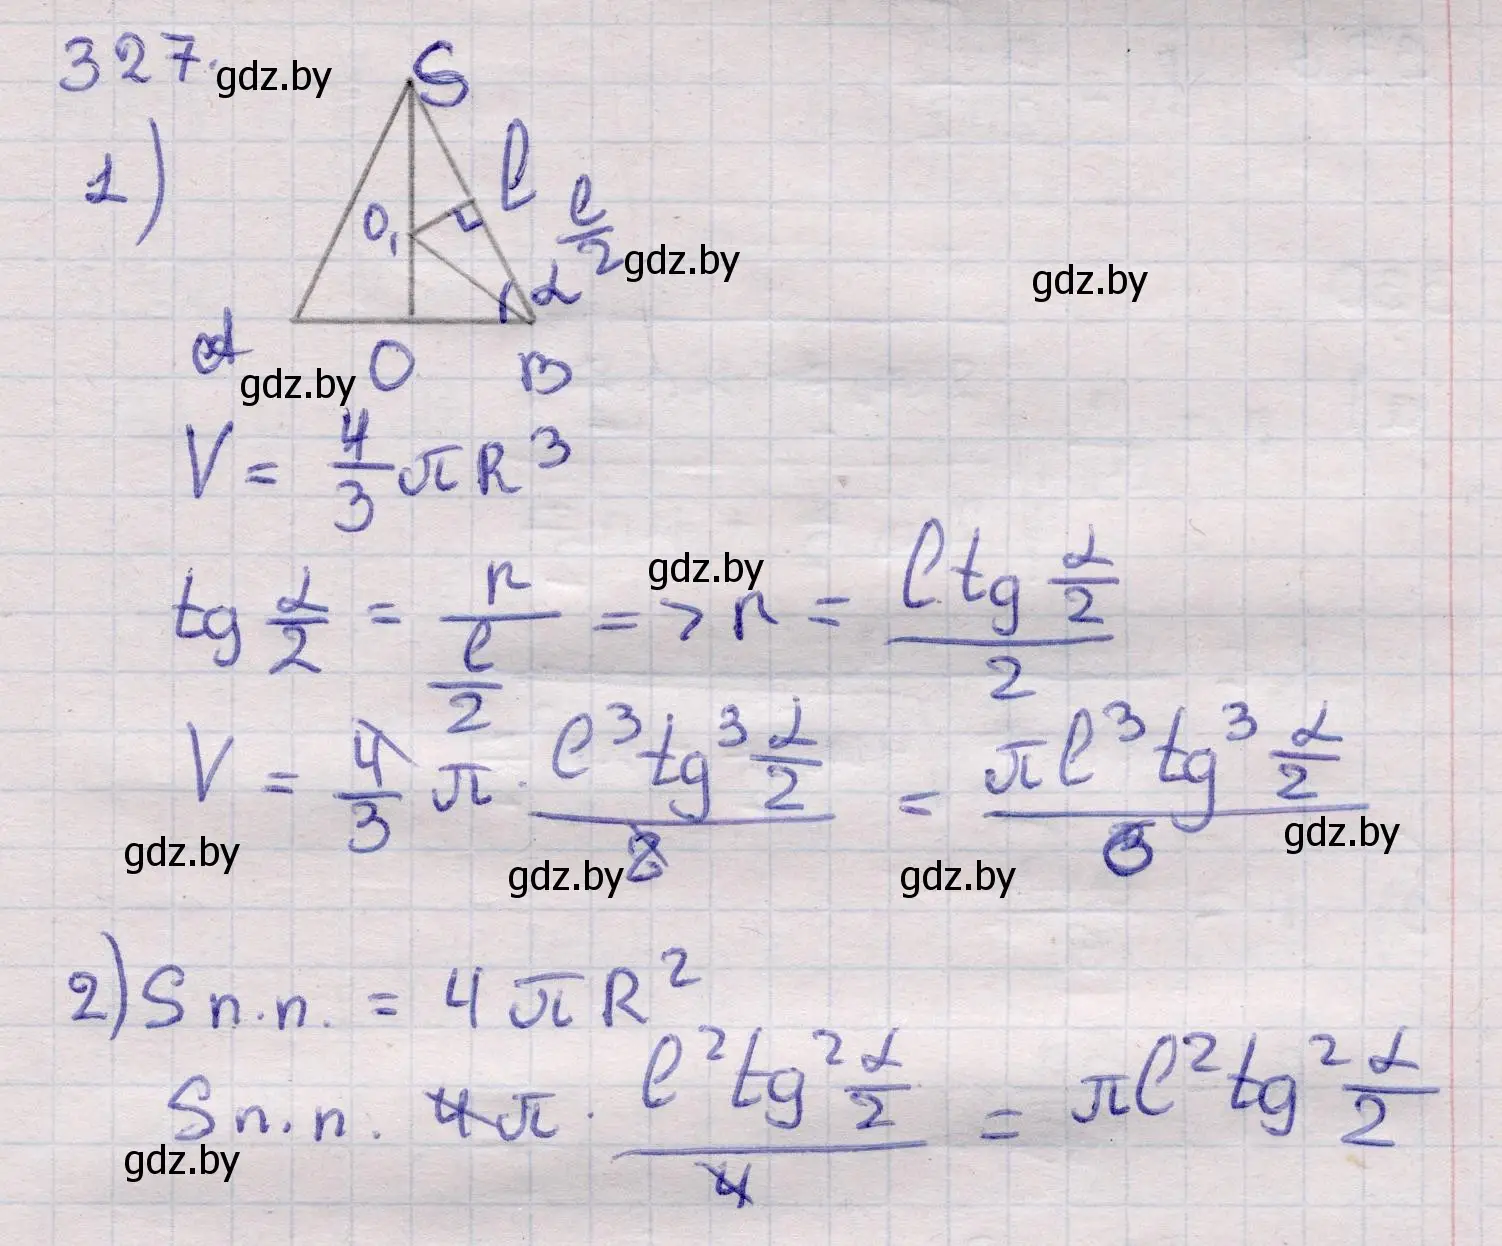 327. gdz.by
S
1)
l
O₁
l/2 gdz.by
α
gdz.by
A O B
gdz.by
V = 4/3 πR³
tg α/2 = r/(l/2) => r = (l tg α/2)/2
gdz.by
V = 4/3 π · (l³ tg³ α/2)/8 = (πl³ tg³ α/2)/6
gdz.by gdz.by gdz.by gdz.by
2) Sп.п. = 4πR²
Sп.п. 4π · (l² tg² α/2)/4 = πl² tg² α/2
gdz.by